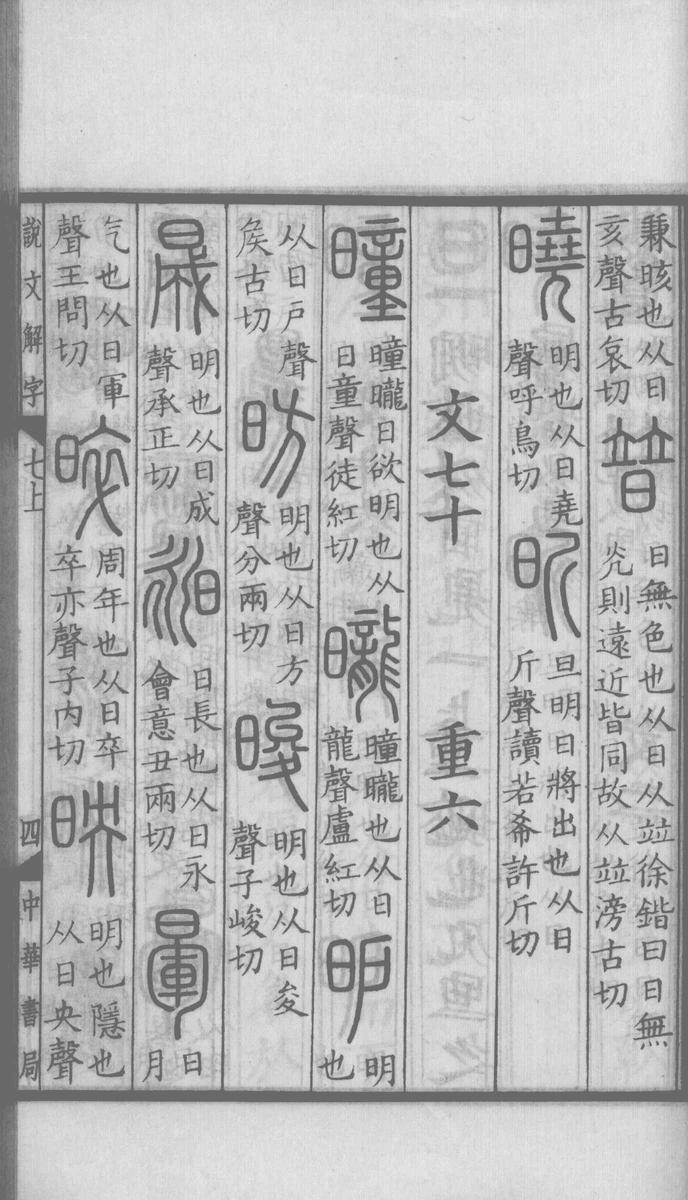 兼晐也从日
亥聲古哀切
暜
日無色也从日从竝徐鍇曰日無
光則遠近皆同故从竝滂古切
曉
明也从日堯
聲呼鳥切
昕
旦明日將出也从日
斤聲讀若希許斤切
文七十 重六
曈
曈曨日欲明也从
日童聲徒紅切
曨
曈曨也从日
龍聲盧紅切
昈
明
也
从日戸聲
矦古切
昉
明也从日方
聲分兩切
晙
明也从日夋
聲子峻切
晟
明也从日成
聲承正切
昶
日長也从日永
會意丑兩切
暈
日
月
气也从日軍
聲王問切
晬
周年也从日卒
卒亦聲子内切
映
明也隱也
从日央聲
說文解字 七上 四 中華書局